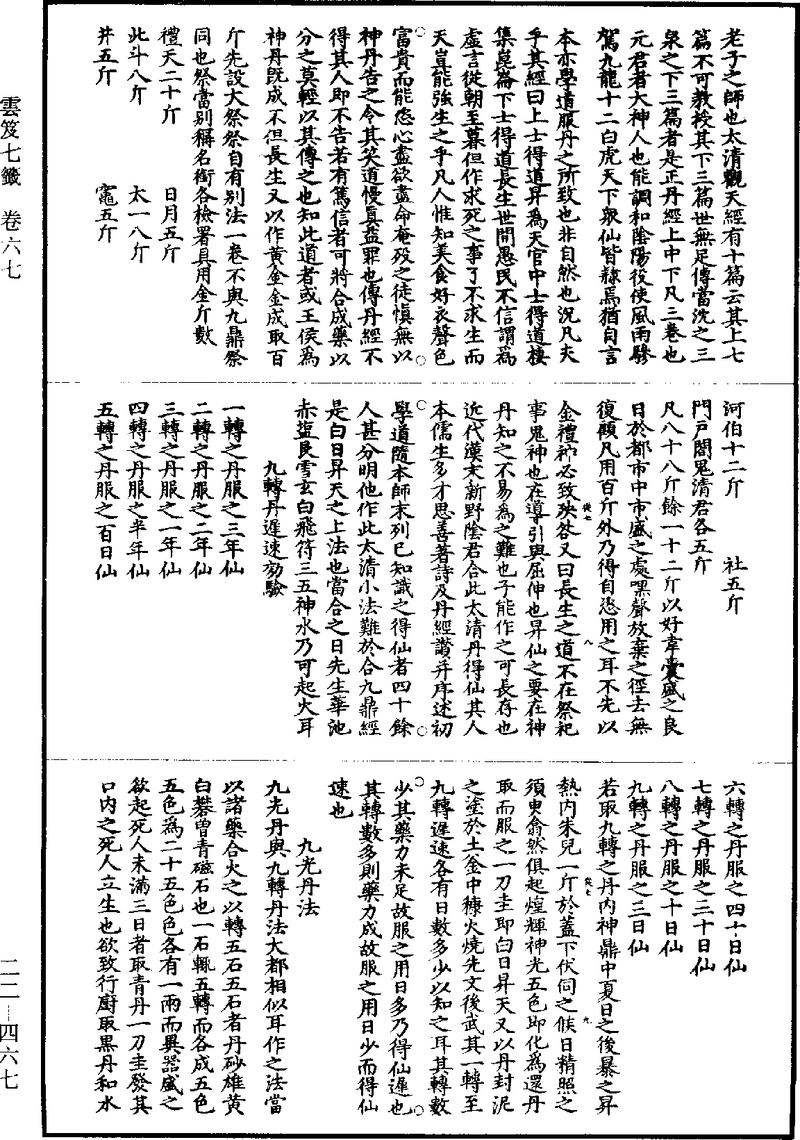 雲笈七籤　卷六七
二二—四六七
老子之師也太清觀天經有十篇云其上七
篇不可教授其下三篇世無足傳當沈之三
泉之下三篇者是正丹經上中下凡三卷也
元君者大神人也能調和陰陽役使風雨驂
駕九龍十二白虎天下衆仙皆隸焉猶自言
本亦學道服丹之所致也非自然也況凡夫
乎其經曰上士得道昇為天官中士得道棲
集崑崙下士得道長生世間愚民不信謂為
虛言從朝至暮但作求死之事了不求生而
天豈能強生之乎凡人惟知美食好衣聲色
富貴而能恣心盡欲盡命奄歿之徒慎無以
神丹告之令其笑道慢真益罪也傳丹經不
得其人即不告若有篤信者可將合成藥以
分之莫輕以其傳之也知此道者或王侯為
神丹既成不但長生又以作黃金金成取百
斤先設大祭祭自有別法一卷不與九鼎祭
同也祭當別稱名銜各檢署具用金斤數
禮天二十斤　日月五斤
此斗八斤　太一八斤
井五斤　竈五斤
河伯十二斤　社五斤
門戶閤鬼清君各五斤
凡八十八斤餘一十二斤以好韋囊盛之良
日於都市中市盛之處嘿聲放棄之徑去無
復顧凡用百斤外乃得自恣用之耳不先以
金禮神必致殃咎又曰長生之道不在祭祀
事鬼神也在導引與屈伸也昇仙之要在神
丹知之不易為之難也子能作之可長存也
近代漢末新野陰君合此太清丹得仙其人
本儒生多才思善著詩及丹經讚并序述初
學道隨本師末列已知識之得仙者四十餘
人甚分明他作此太清小法難於合九鼎經
是白日昇天之上法也當合之日先生華池
赤鹽艮雪玄白飛符三五神水乃可起火耳
九轉丹遲速効驗
一轉之丹服之三年仙
二轉之丹服之二年仙
三轉之丹服之一年仙
四轉之丹服之半年仙
五轉之丹服之百日仙
六轉之丹服之四十日仙
七轉之丹服之三十日仙
八轉之丹服之十日仙
九轉之丹服之三日仙
若取九轉之丹內神鼎中夏日之後暴之昇
熱內朱兒一斤於蓋下伏伺之候日精照之
須臾翕然俱起煌輝神光五色即化為還丹
取而服之一刀圭即白日昇天又以丹封泥
之塗於土金中糠火燒先文後武其一轉至
九轉遲速各有日數多少以知之耳其轉數
少其藥力未足故服之用日多乃得仙遲也
其轉數多則藥力成故服之用日少而得仙
速也
九光丹法
九光丹與九轉丹法大都相似耳作之法當
以諸藥合火之以轉五石五石者丹砂雄黃
白礬曾青磁石也一石輒五轉而各成五色
五色為二十五色色各有一兩而異器盛之
欲起死人未滿三日者取青丹一刀圭發其
口內之死人立生也欲致行廚取黑丹和水